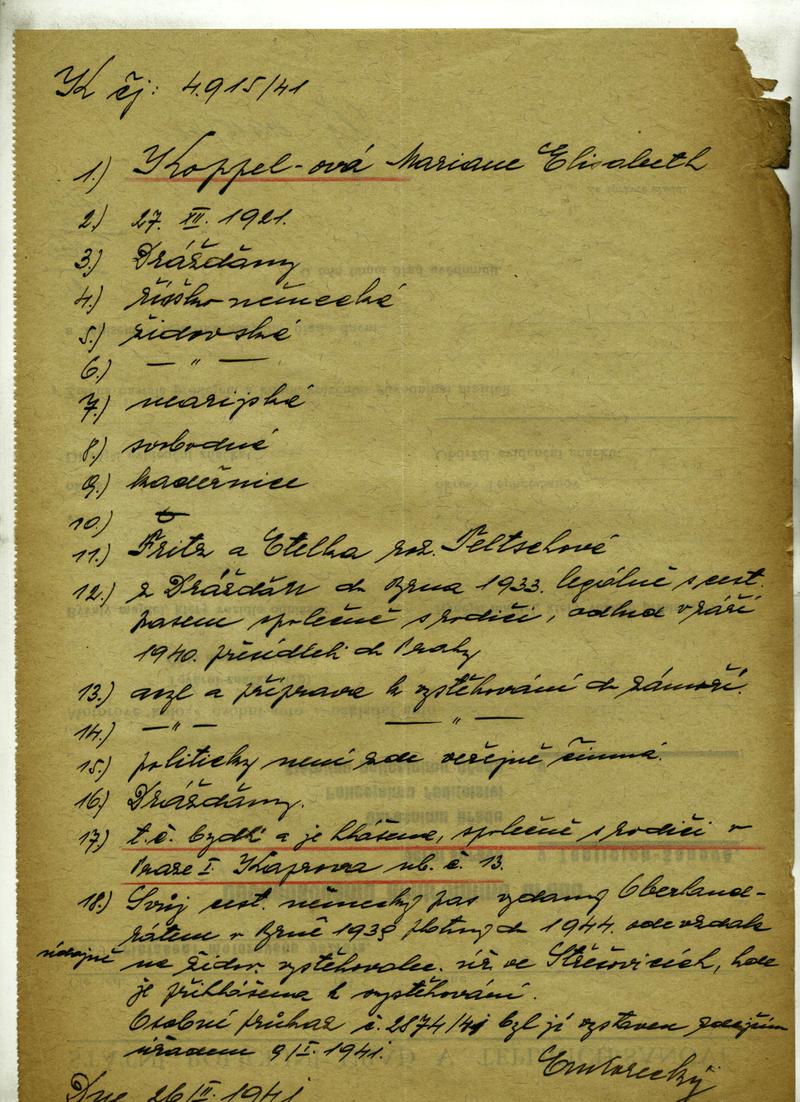 K čj: 4.915/41
1.) Koppel-ová Mariane Elisabeth
2.) 27. XII. 1921.
3.) Drážďany
4.) říšsko-německé
5.) židovské
6.) — " —
7.) nearijské
8.) svobodná
9.) kadeřnice
10.)
11.) Fritz a Etelka roz. Peltschové
12.) z Drážďan do Brna 1933. legálně s cest.
pasem společně s rodiči, odtud v září
1940. přesídlili do Prahy
13.) azyl a příprava k vystěhování do zámoří.
14.) — " — — " —
15.) politicky není zde veřejně činná.
16.) Drážďany.
17.) t.č. bydlí a je hlášena, společně s rodiči v
Praze I. Kaprova ul. č. 13.
18.) Svůj cest. německý pas vydaný Oberland-
rátem v Brně 1939 platný do 1944. odevzdala
údajně na židov. vystěhovalec. ve Střešovicích, kde
je přihlášena k vystěhování.
Osobní průkaz č. 2874/41 byl jí vystaven zdejším
úřadem 9/I. 1941.
Dne 26/II. 1941